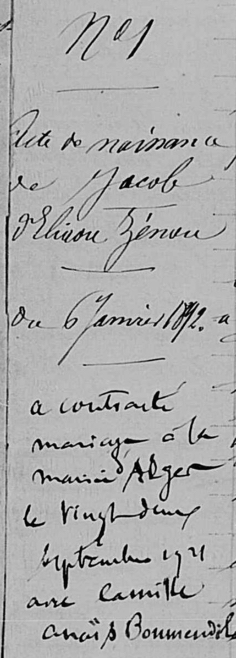 N° 1
Acte de naissance
de Jacob
d'Eliaou Zénou
du 6 Janvier 1892.
a contracté
mariage à la
mairie d'Alger
le vingt deux
septembre 1921
avec Camille
Anaïs Boumendil